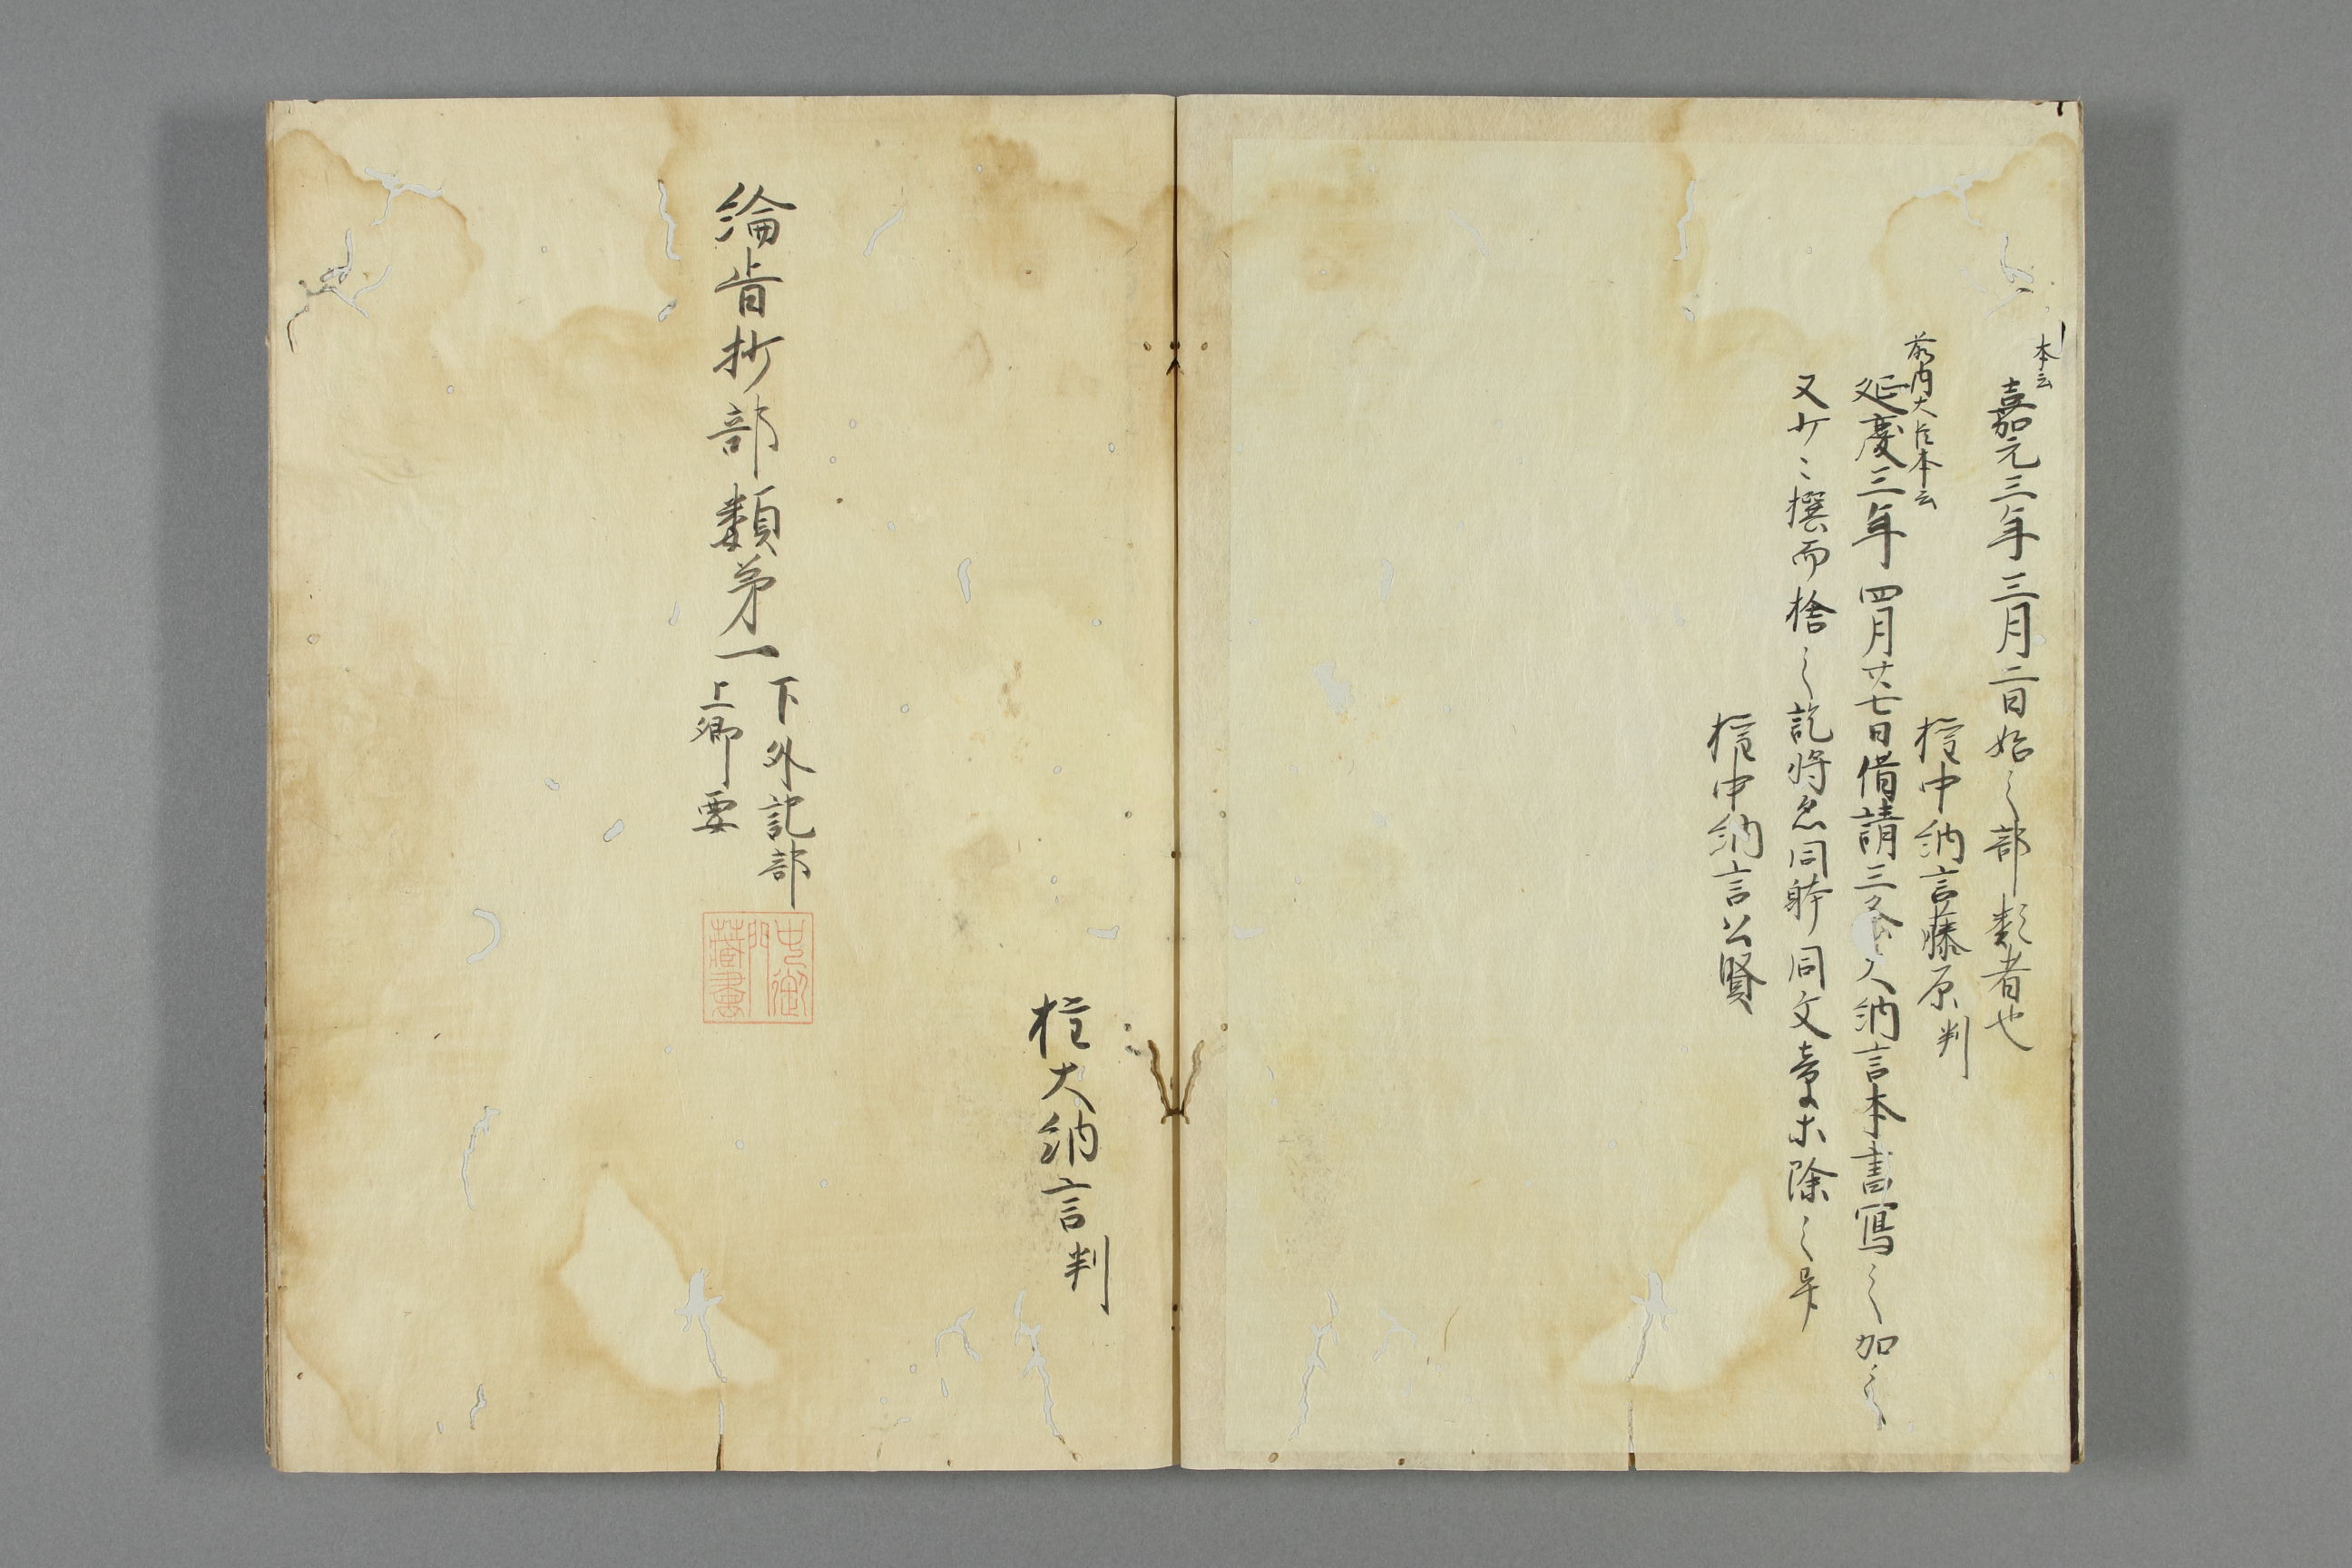 本云
嘉元三年三月二日始之部類者也
権中納言藤原判
前内大臣本云
延慶三年四月廿七日借請三条大納言本書寫之加之
又少〻撰而捨之訖将同躰同文章等除之畢
権中納言公賢
権大納言判
綸旨抄部類第一
下外記部
上卿要
中御門藏書